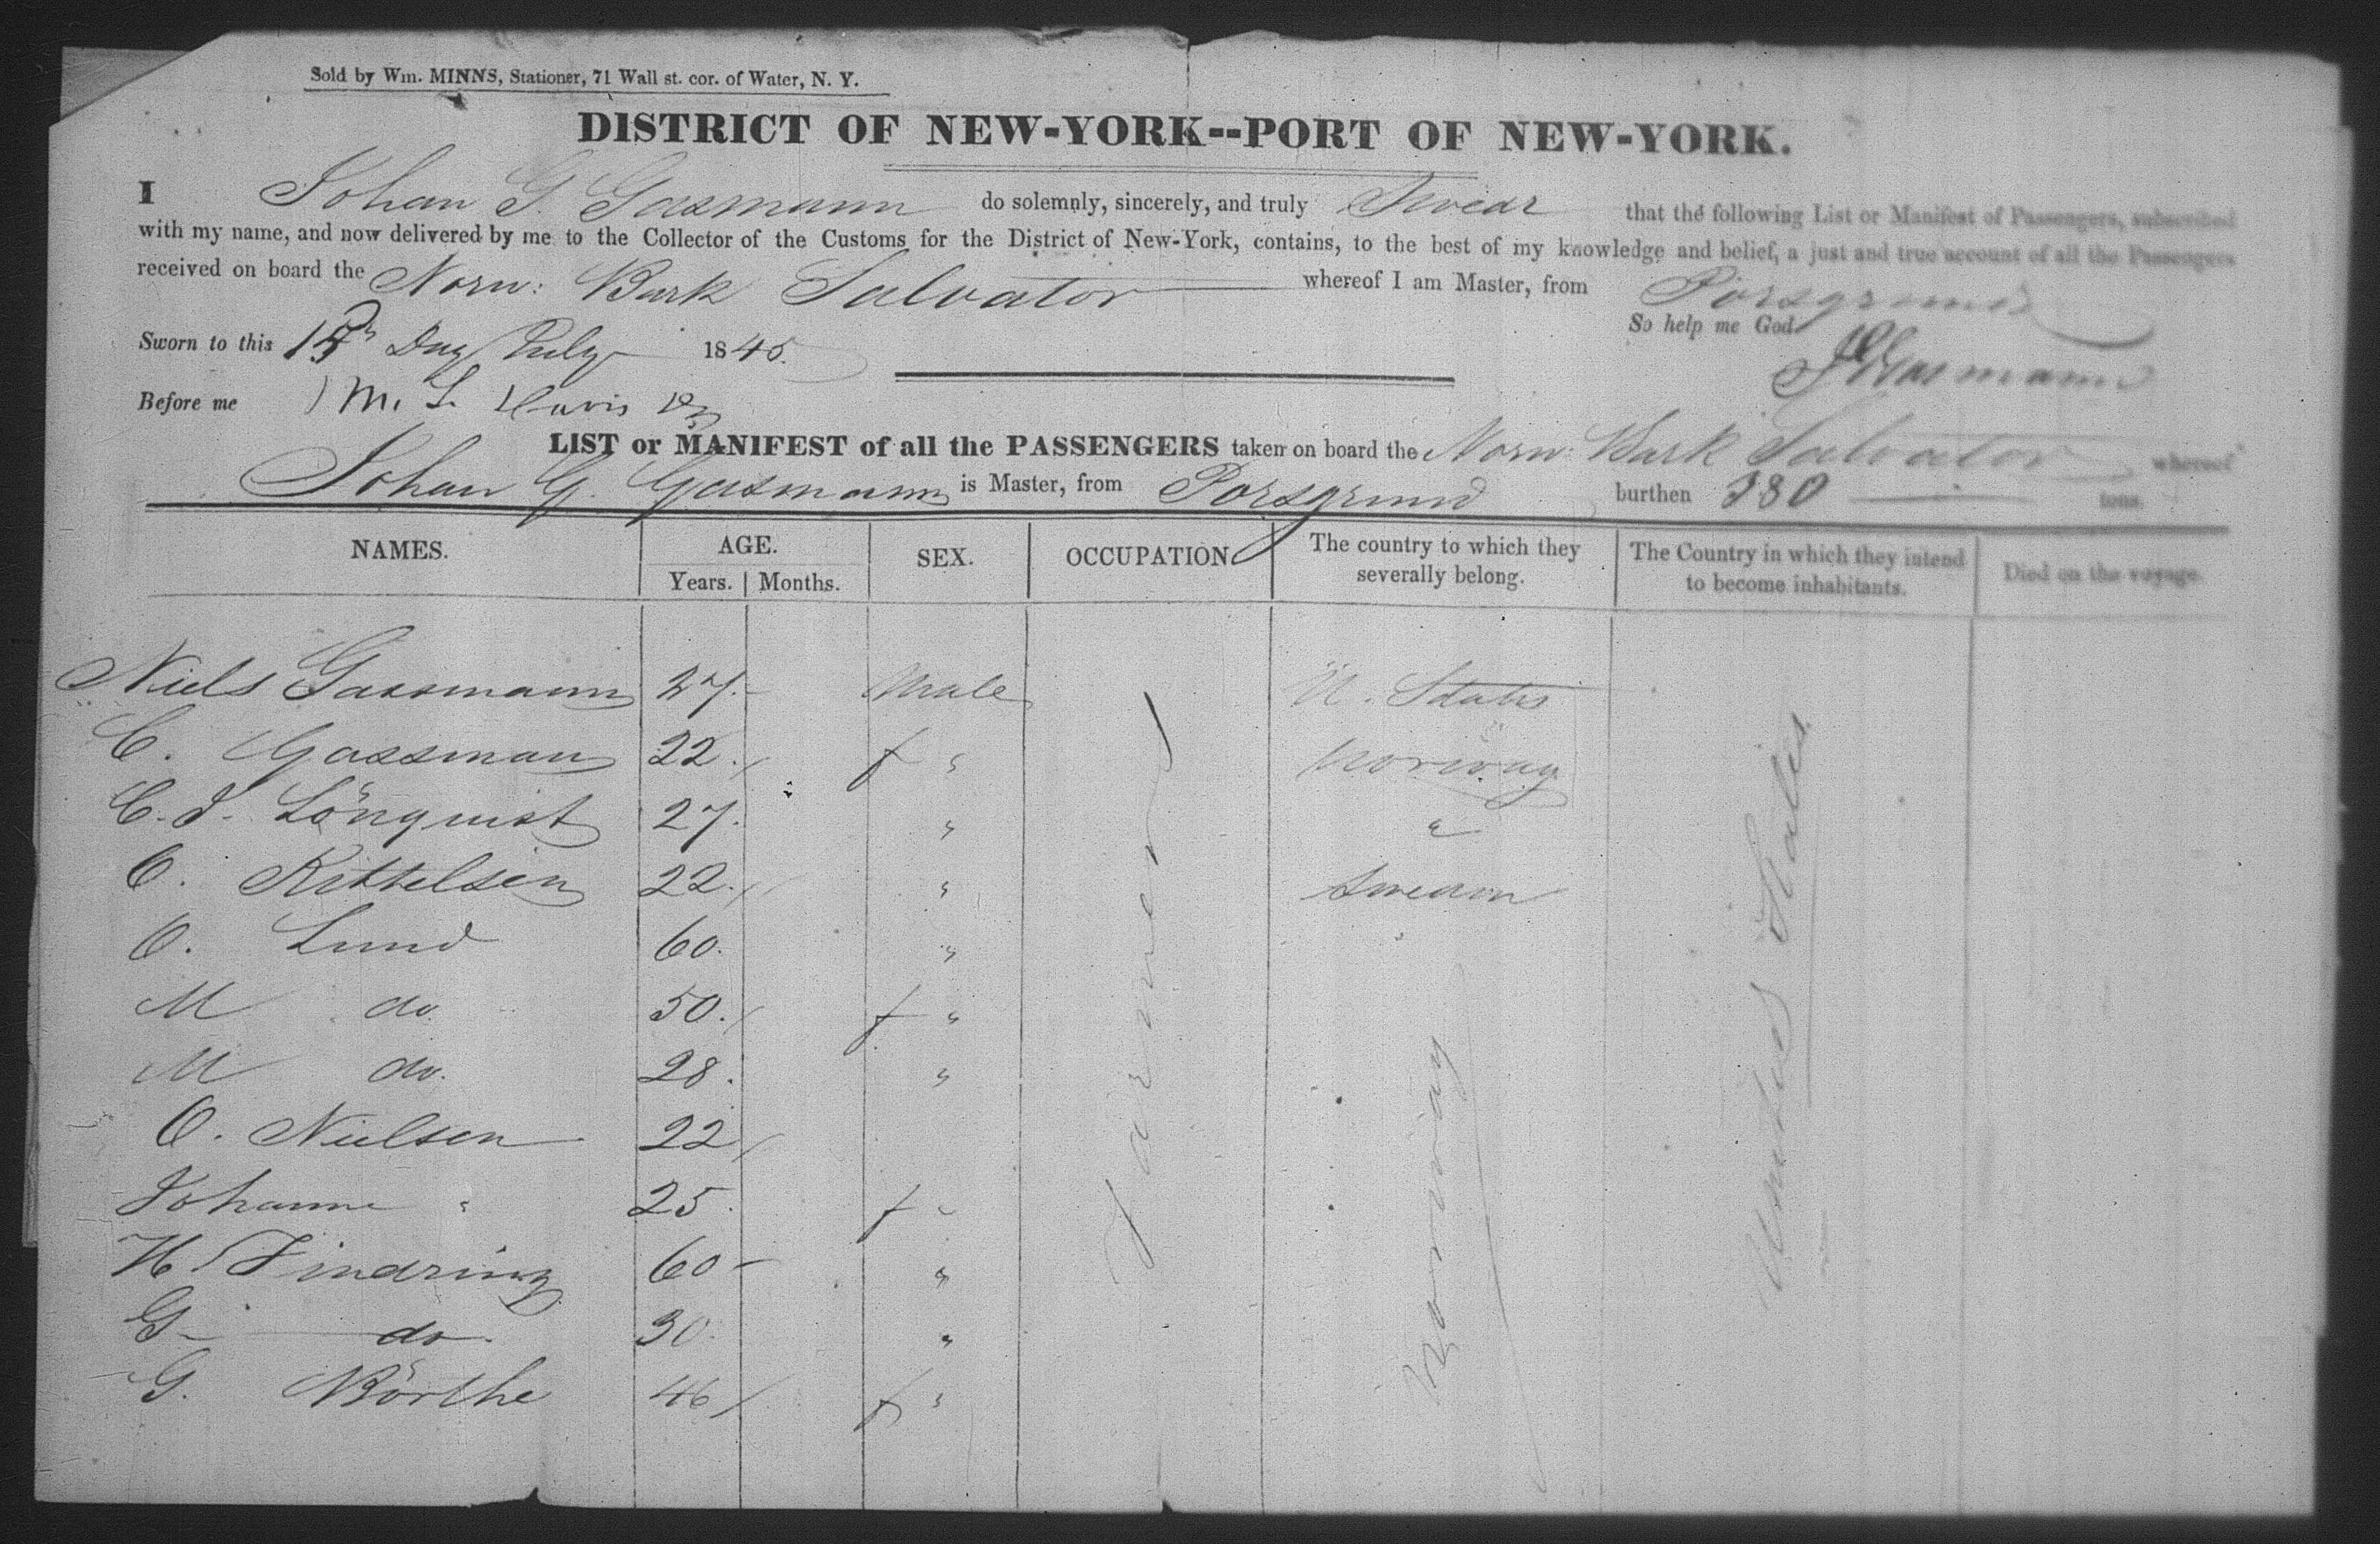 Sold by Wm. MINNS, Stationer, 71 Wall st. cor. of Water, N. Y.
DISTRICT OF NEW-YORK--PORT OF NEW-YORK.
I Johan G. Gasmann do solemnly, sincerely, and truly Swear that the following List or Manifest of Passengers, subscribed
with my name, and now delivered by me to the Collector of the Customs for the District of New-York, contains, to the best of my knowledge and belief, a just and true account of all the Passengers
received on board the Norw: Bark Salvator whereof I am Master, from Porsgrund
So help me God.
Sworn to this Day July 1845.
Gasmann
Before me M. L. Davis
LIST or MANIFEST of all the PASSENGERS taken on board the Norw: Bark Salvator whereof
Johan G. Gasmann is Master, from Porsgrund burthen 380 tons.
NAMES. AGE. SEX. OCCUPATION The country to which they severally belong. The Country in which they intend to become inhabitants. Died on the voyage.
Years. Months.
Niels Gassmann 27. Male U. States
C. Gassman 22. f " Norway
C. J. Lönquist 27. " "
C. Kittelsen 22. " Sweden
O. Lund 60. " "
M do. 50. f "
M do. 28. "
O. Nielsen 22
Johanne " 25. f "
H. Tindring 60 "
G do. 30. "
G. Börthe 46 f "
Farmer
Norway
United States